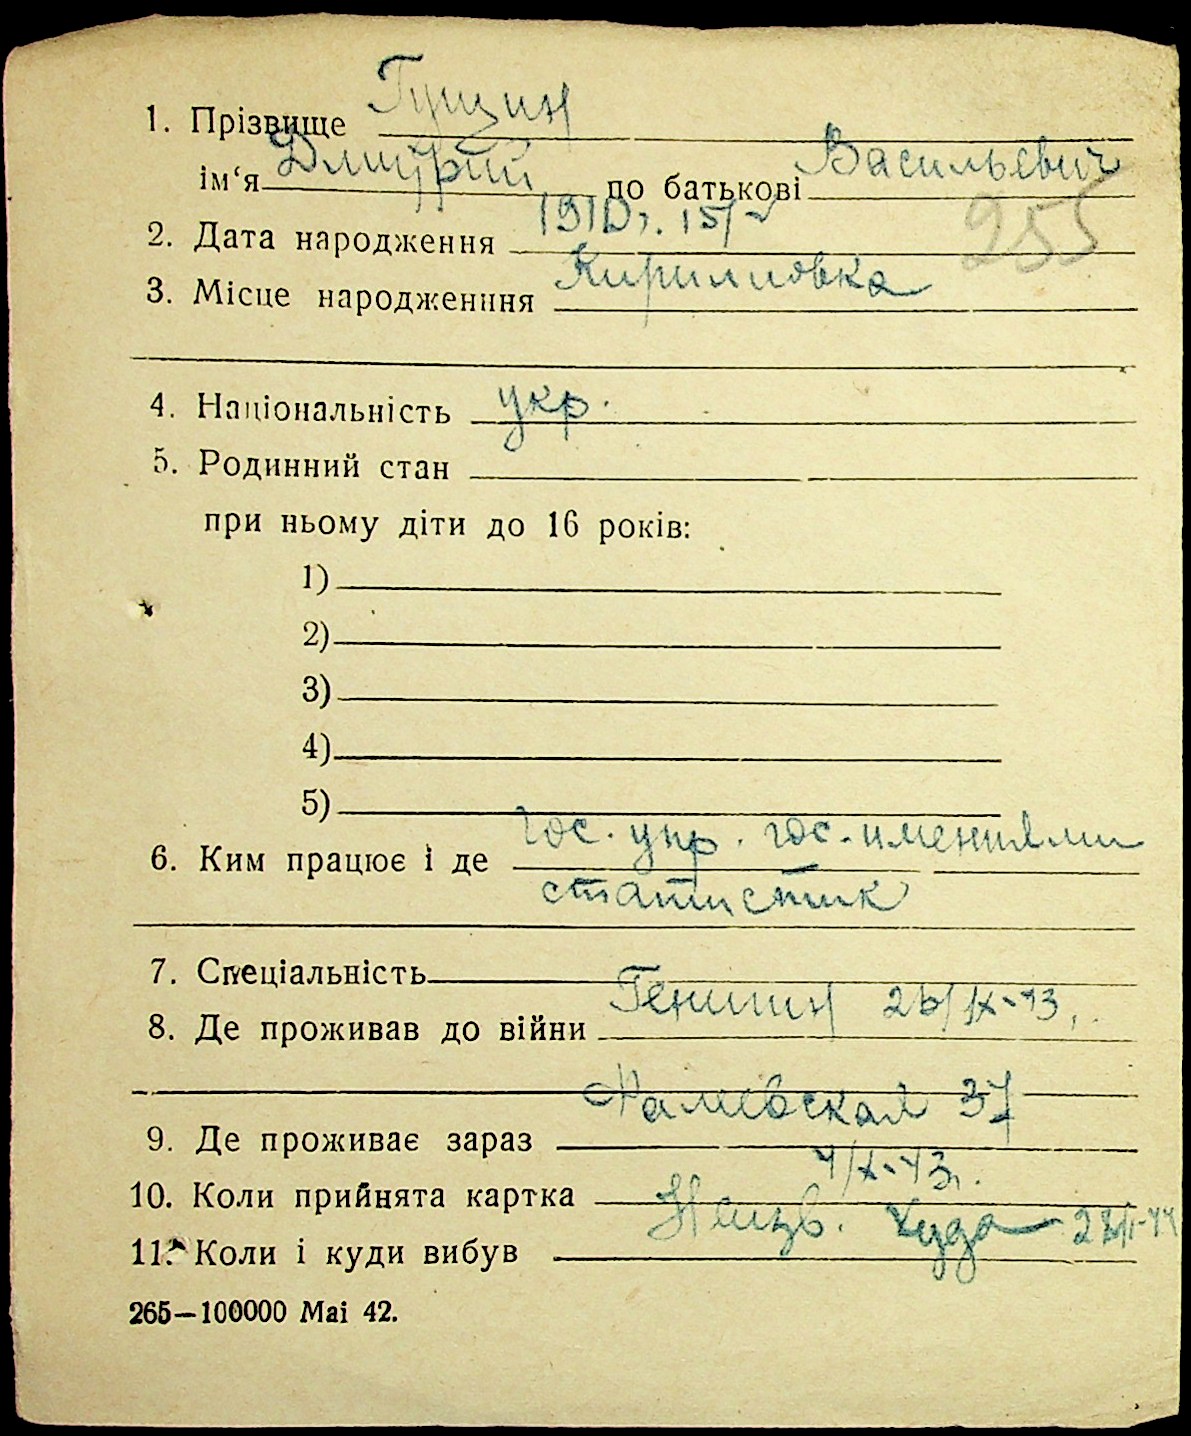 1. Прізвище Гущин
ім‘я Дмитрий по батькові Васильевич
255
2. Дата народження 1910 г. 15/V
3. Місце народженння Кирилловка
4. Національність укр.
5. Родинний стан
при ньому діти до 16 років:
1)
2)
3)
4)
5)
6. Ким працює і де Гос. упр. гос. имениями
статистик
7. Спеціальність
8. Де проживав до війни 
9. Де проживає зараз 37
10. Коли прийнята картка 4/X-43г.
11. Коли і куди вибув Неизв. куда
265—100000 Mai 42.